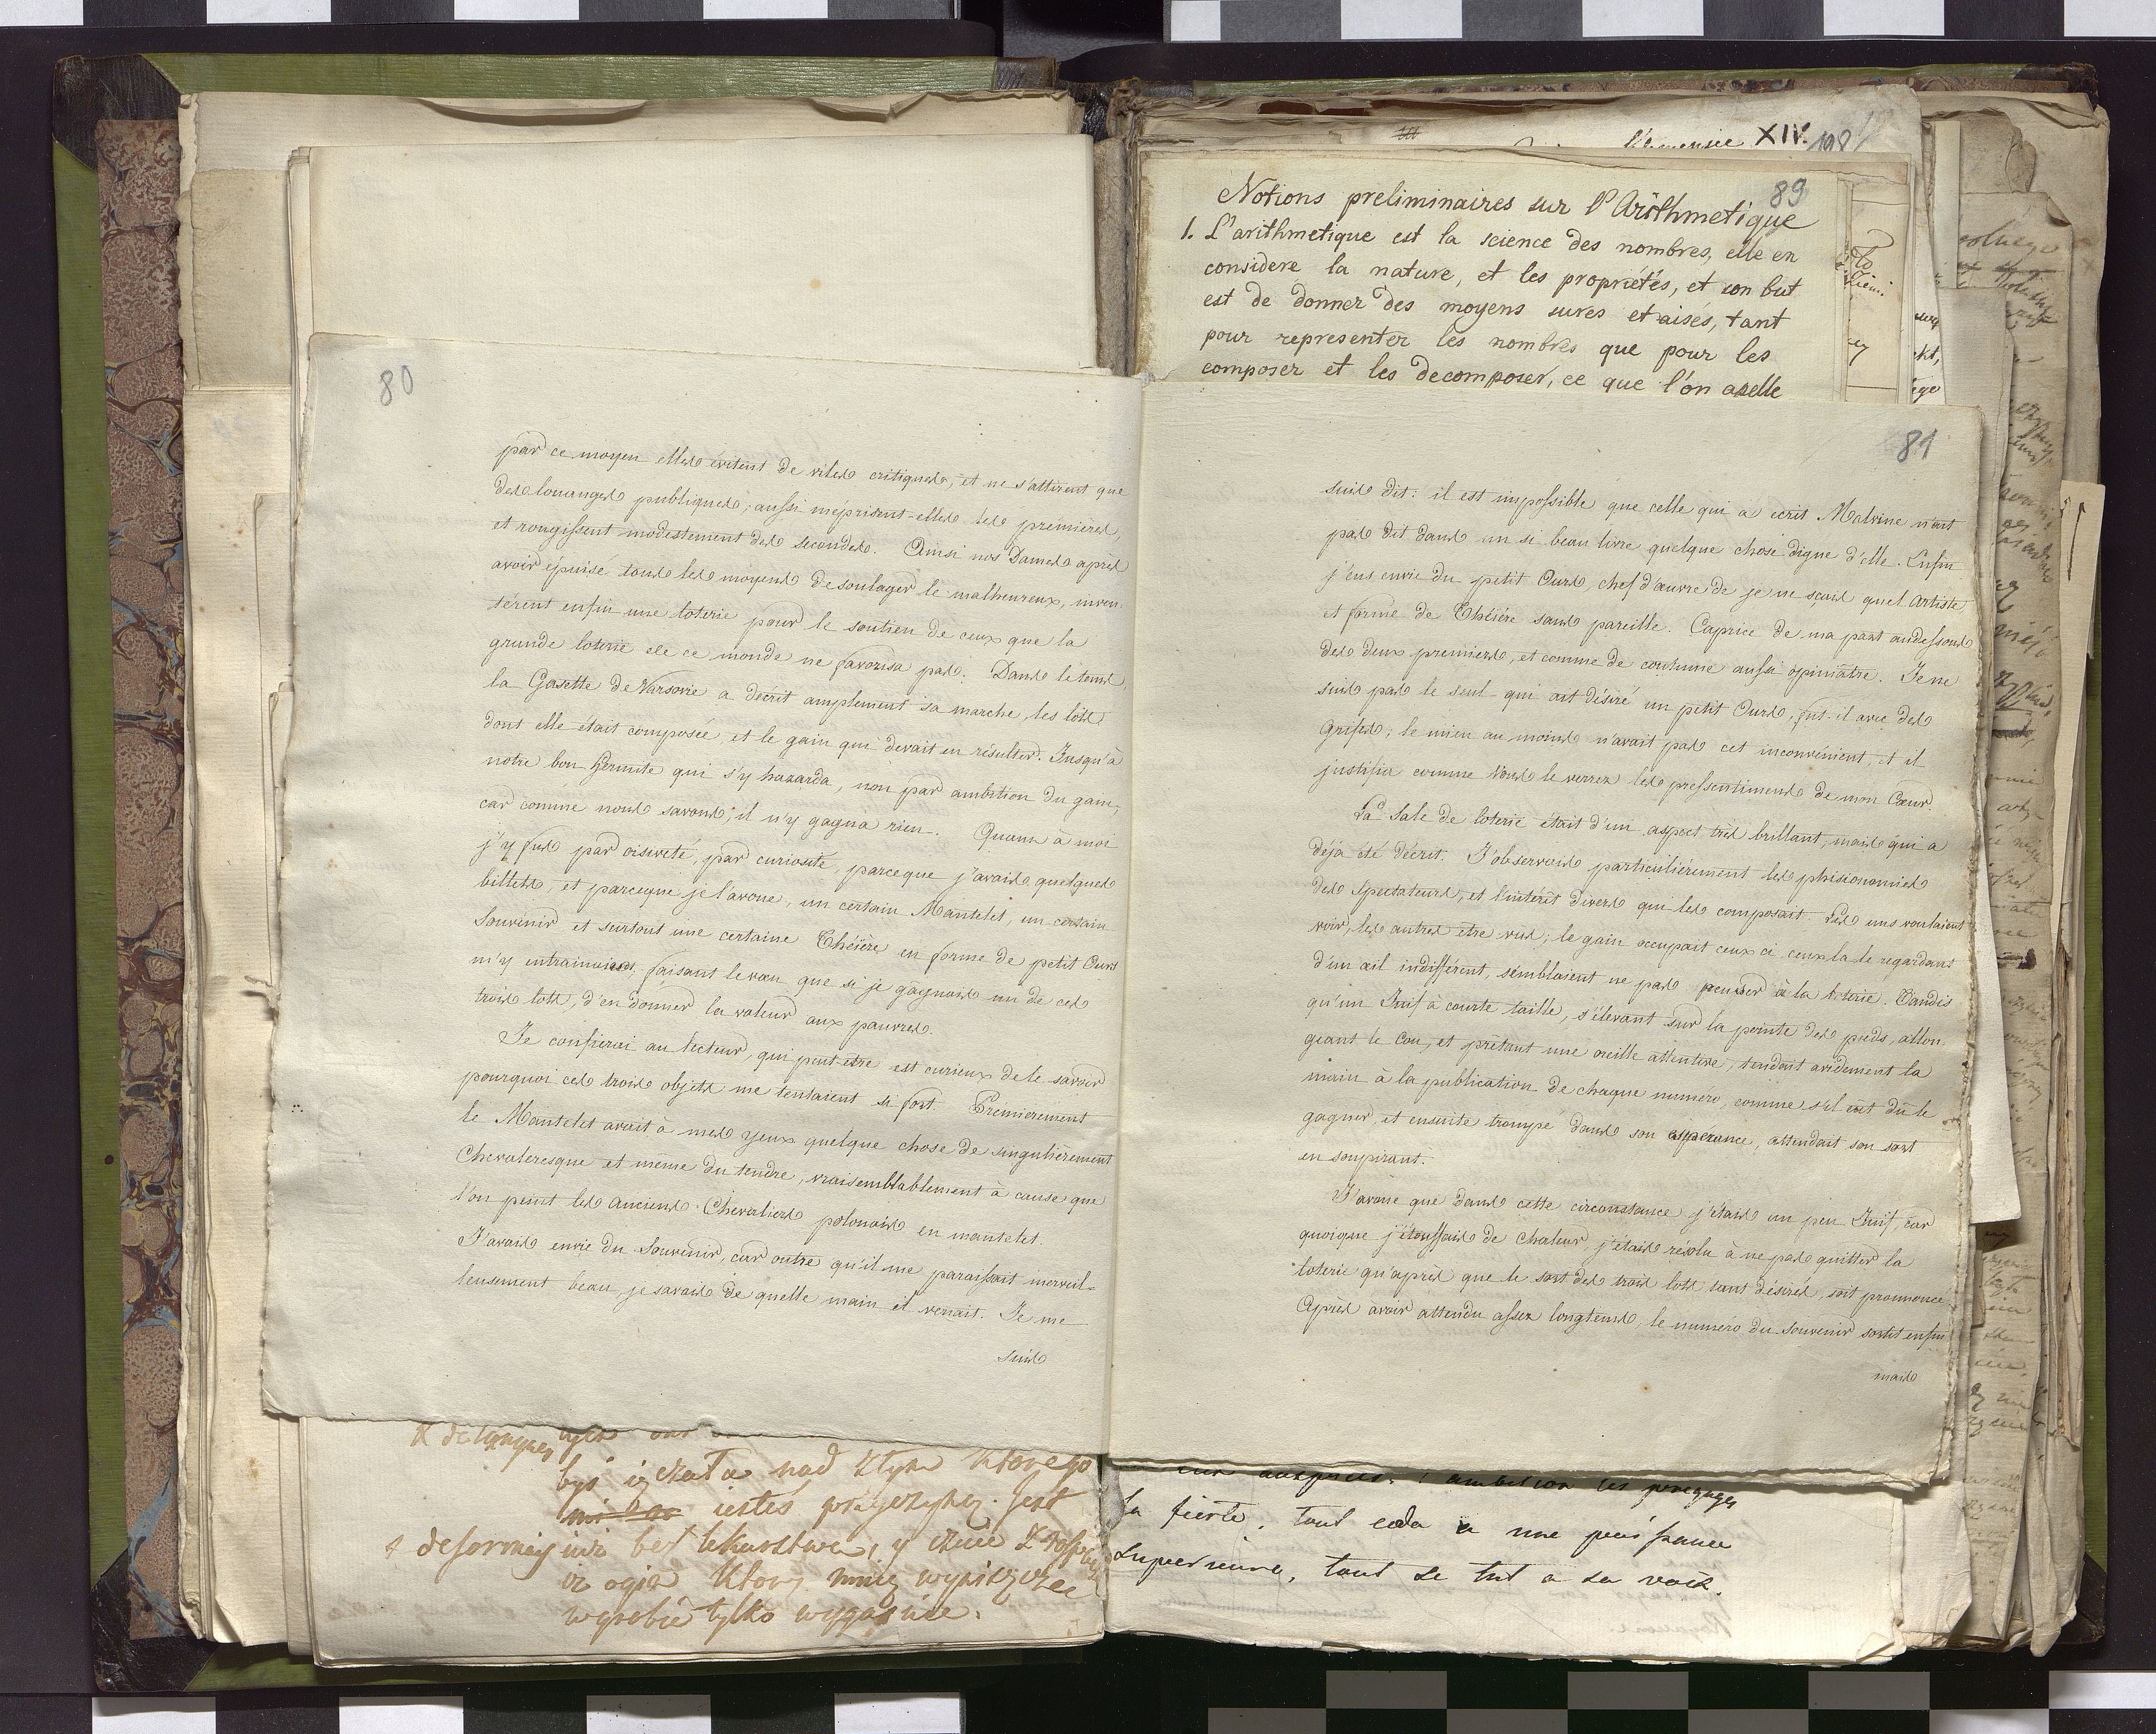 80
par ce moyen elles évitent de viles critiques, et ne s'attirent que
des louanges publiques; aussi méprisent-elles les premières,
et rougissent modestement des secondes. Ainsi nos Dames après
avoir épuisé tous les moyens de soulager le malheureux, inven
térent enfin une loterie pour le soutien de ceux que la
grande loterie de ce monde ne favorisa pas. Dans le tems,
la Gasette de Varsovie a décrit amplement sa marche, les lots
dont elle était composée, et le gain qui devait en résulter. Jusqu'à
notre bon Hermite qui s'y hazarda, non par ambition du gain,
car comme nous savons, il n'y gagna rien. Quant à moi
j'y fus par oisiveté, par curiosité, parceque j'avais quelques
billets, et parceque je l'avoue, un certain Mantelet, un certain
Souvenir et surtout une certaine Théière en forme de petit Ours
m'y entrainaient, faisant le vœu que si je gagnais un de ces
trois lots, d'en donner la valeur aux pauvres.
Je confierai au lecteur, qui peut-etre est curieux de le savoir
pourquoi ces trois objets me tentaient si fort. Prémièrement
le Mantelet avait à mes yeux quelque chose de singulièrement
Chevaleresque et même du tendre, vraisemblablement à cause que
l'on peint les anciens Chevaliers polonais en mantelet.
J'avais envie du Souvenir, car outre qu'il me paraissait merveil-
leusement beau, je savais de quelle main il venait. Je me
suis
& de
być iż nad ktorego
iestes przyczyną. Jest
& desormais bez lekarstwa, y
iż ogień ktory
tylko
XIV.
198
89
Notions preliminaires sur l'Arithmetique
1. L'arithmetique est la science des nombres, elle en
considere la nature, et les propriétés, et son but
est de donner des moyens sures et aisés, tant
pour representer les nombres que pour les
composer et les decomposer, ce que l'on apelle
81
suis dit: il est impossible que celle qui a ecrit Malvine n'ait
pas dit dans un si beau livre quelque chose digne d'elle. Enfin
j'eus envie du petit Ours, chef d'œuvre de je ne sçais quel Artiste,
et forme de Théière sans pareille. Caprice de ma part audessous
des deux premiers, et comme de coutume aussi opiniâtre. Je ne
suis pas le seul qui ait désiré un petit Ours, fut-il avec des
Griffes; le mien au moins n'avait pas cet inconvénient, et il
justifia comme Vous le verrez les pressentimens de mon Cœur.
La Sale de loterie était d'un aspect très brillant, mais qui a
déja été décrit. J'observais particulièrement les phisionomies
des spectateurs, et l'intérêt divers qui les composait. Les uns voulaient
voir, les autres etre vus; le gain occupait ceux ci ceux la le regardant
d'un œil indifférent, semblaient ne pas penser à la loterie. Tandis
qu'un Juif à courte taille, s'élevant sur la pointe des pieds, allon
geant le Cou, et prêtant une oreille attentive, tendait avidement la
main à la publication de chaque numéro, comme s'il eut dû le
gagner, et ensuite trompé dans son espérance, attendait son sort
en soupirant.
J'avoue que dans cette circonstance j'étais un peu Juif, car
quoique j'étouffais de chaleur, j'étais résolu à ne pas quitter la
loterie qu'après que le sort des trois lots tant désirés, soit prononcé
Après avoir attendu assez longtems, le numéro du Souvenir sortit enfin
mais
ambition les
la fierté, tout ceda a une puissance
superieure, tout se tut a sa voix.